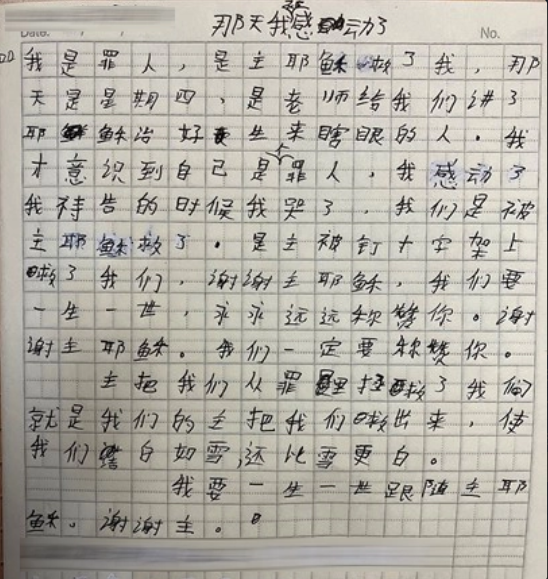 那天我被感动了
Date. / / No.
我是罪人，是主耶稣救了我，那
天是星期四，是老师给我们讲了
耶稣治好生来瞎眼的人。我
才意识到自己是个罪人，我感动了
我祷告的时候我哭了，我们是被
主耶稣救了。是主被钉十字架上
救了我们，谢谢主耶稣，我们要
一生一世，永永远远称赞你。谢
谢主耶稣。我们一定要称赞你。
主把我们从罪里拯救了我们
就是我们的主把我们救出来，使
我们洁白如雪，还比雪更白。
我要一生一世跟随主耶
稣。谢谢主。